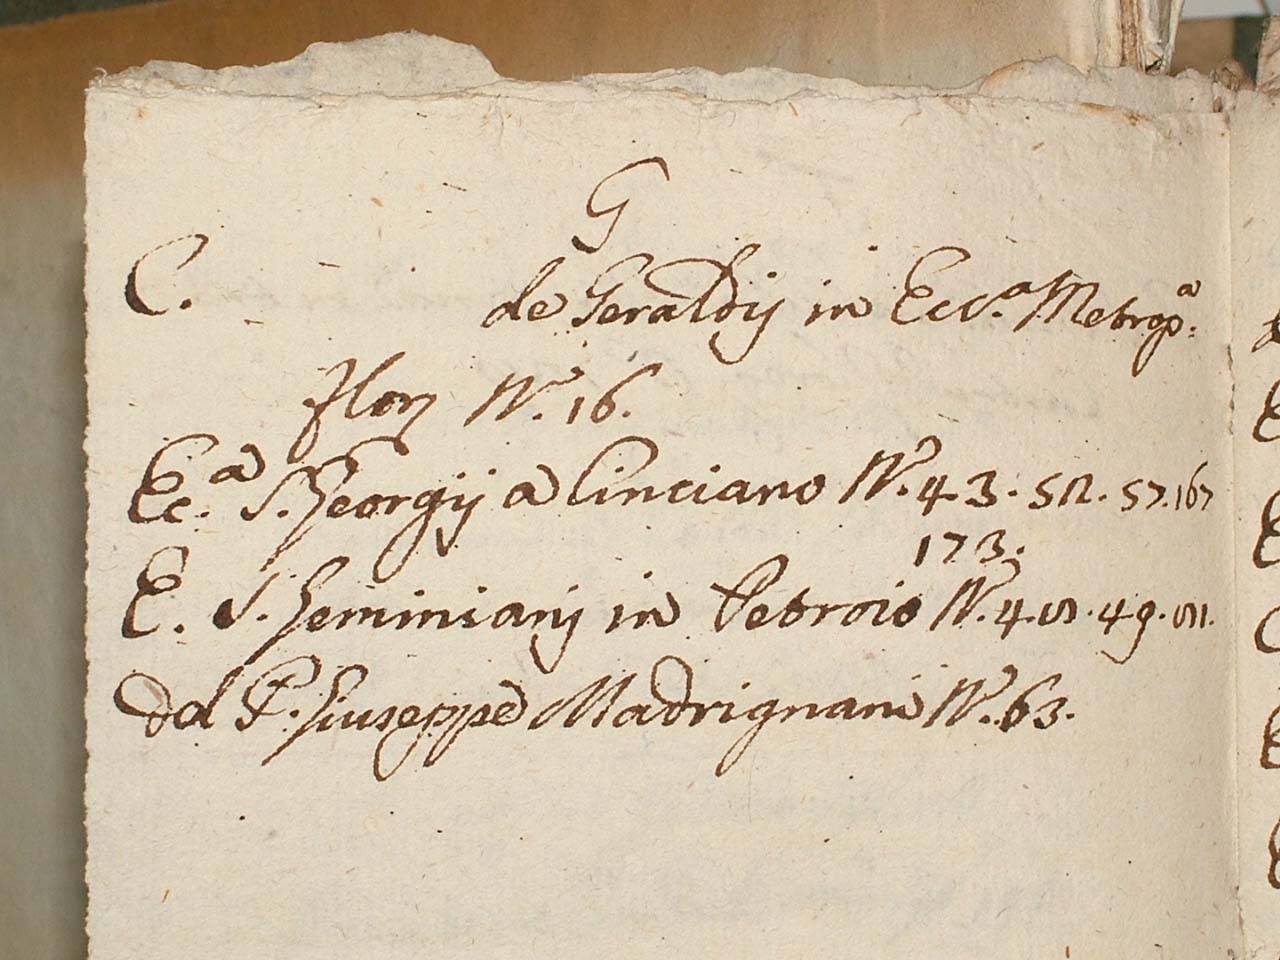 G
C. de Geraldij in Ecc.a Metrop.a
flor N. 16.
Ec.a S. Georgij a Cinciano N. 43. 52. 57. 167
173.
E. S. Geminianj in Petroio N. 4. 49.
Dal P. Giuseppe Madrignani N. 63.